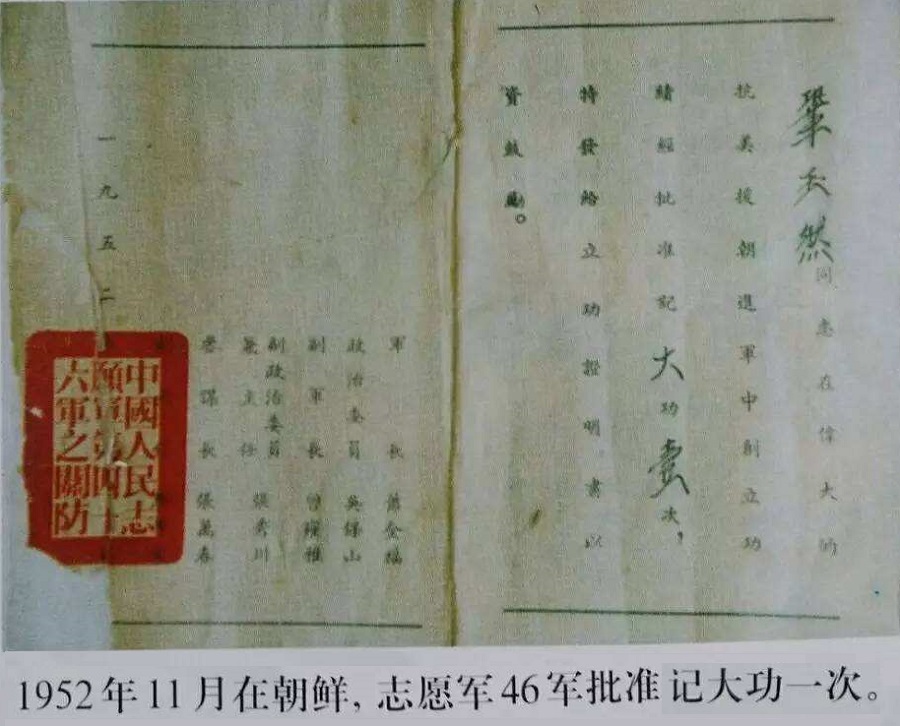 鞏天然同志在偉大的
抗美援朝進軍中創立功
績經批准記大功壹次，
特發給立功證明書以
資鼓勵。
軍長 蕭全福
政治委員 吳保山
副軍長 曾雍雅
副政治委員
兼主任 張秀川
參謀長 張萬春
一九五二
中國人民志
願軍第四十
六軍之關防
1952年11月在朝鲜, 志愿军46军批准记大功一次。